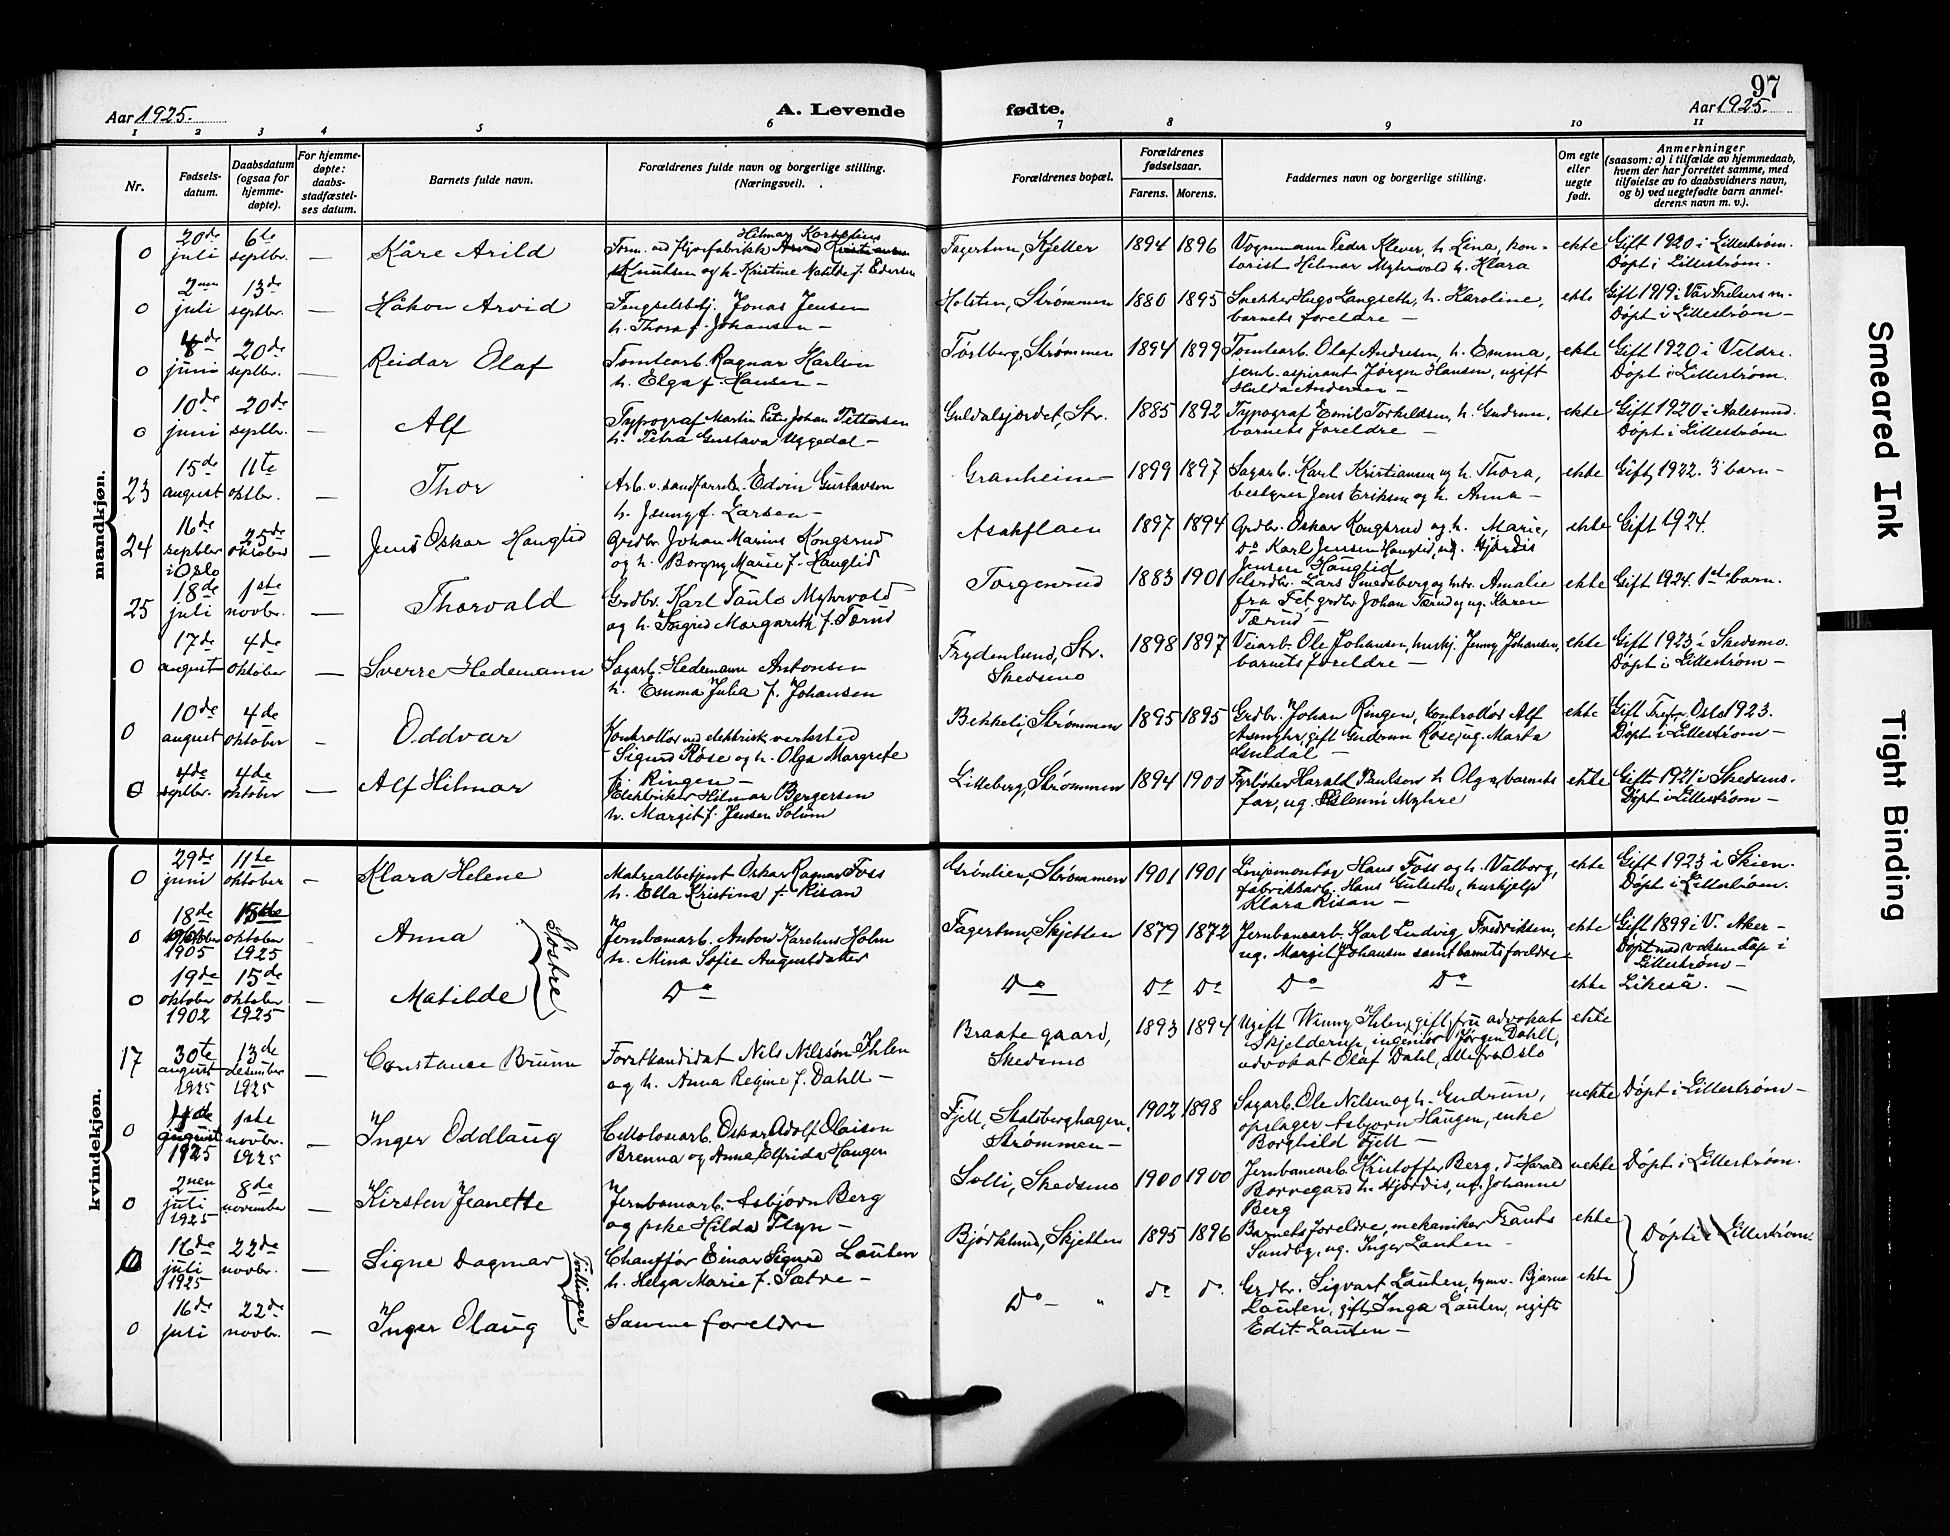 97
Aar 1925.
A. Levende
fødte.
Aar 1925.
1 2 3 4 5 6 7 8 9 10 11
Nr.
Fødsels-
datum.
Daabsdatum
(ogsaa for
hjemme-
døpte).
For hjemme-
døpte:
daabs-
stadfæstel-
ses datum.
Barnets fulde navn.
Forældrenes fulde navn og borgerlige stilling.
(Næringsvei).
Forældrenes bopæl.
Forældrenes
fødselsaar.
Farens. Morens.
Faddernes navn og borgerlige stilling.
Om egte
eller
uegte
født.
Anmerkninger
(saasom: a) i tilfælde av hjemmedaab,
hvem der har forrettet samme, med
tilføielse av to daabsvidners navn,
og b) ved uegtefødte barn anmel-
derens navn m. v.).
mandkjøn.
0
20de
juli
6te
septbr.
—
Kåre Arild
Knutsen og h. Kristine Matilde f. Pedersen
Fagertun, Skjetten
1894 1896
Vognmann Peder Klever, h. Lina, kon-
torist Hilmar Myhrvold h. Klara
ekte
Gift 1920 i Lillestrøm.
Døpt i Lillestrøm.
0
2nen
juli
13de
septbr.
—
Håkon Arvid
Fengselsbtj. Jonas Jensen
h. Thora f. Johansen —
Holsten, Strømmen
1880 1895
Hugo Langseth, h. Karoline,
barnets foreldre —
ekte
Gift 1919 i Vår Frelsers m.
Døpt i Lillestrøm —
0
8de
juni
20de
septbr.
—
Reidar Olaf
Tomtearb. Ragnar Karlsen
h. Elga f. Hansen —
Strømmen
1894 1899
Tomtearb. Olaf Andresen, h. Emma,
jernb. aspirant Jørgen Hansen, ugift
Hulda Andersen —
ekte
Gift 1920 i Veldre.
Døpt i Lillestrøm.
0
10de
juni
20de
septbr.
—
Alf
Typograf Martin Johan Pettersen
h. Petra Gustava Uggedal —
Guldalsjordet, Str.
1885 1892
Typograf Emil Torkildsen, h. Gudrun,
barnets foreldre —
ekte
Gift 1920 i Aalesund.
Døpt i Lillestrøm
23
15de
august
11te
oktbr.
—
Thor
Edvin Gustavsen
h. Jenny f. Larsen —
Granheim
1899 1897
Sagarb. Karl Kristiansen og h. Thora,
bestyrer Jens Eriksen og h. Anna —
ekte
Gift 1922. 3 barn —
24
16de
septbr
i Oslo
25de
oktober
—
Jens Oskar Hauglid
Grdbr. Johan Marius Kongsrud
og h. Borgny Marie f. Hauglid
Asakflaen
1897 1894
Grdbr. Oskar Kongsrud og h. Marie,
do Karl Jensen Hauglid, ug. Hjørdis
Jensen Hauglid
ekte
Gift 1924.
25
18de
juli
1ste
novbr.
—
Thorvald
Grdbr. Karl Paulo Myhrvold
og h. Ingrid Margareth f. Tærud
Torgenrud
1883 1901
Grdbr. Lars Smedsberg og htr. Amalie
fra Fet, grdbr Johan Tærud og ug. Karen
Tærud —
ekte
Gift 1924. 1ste barn.
0
17de
august
4de
oktober
—
Sverre Hedemann
Sagarb. Hedemann Antonsen
h. Emma Julia f. Johansen
Frydenlund, Str.
Skedsmo
1898 1897
Veiarb. Ole Johansen, huskj. Jenny Johansen,
barnets foreldre —
ekte
Gift 1923 i Skedsmo.
Døpt i Lillestrøm —
0
10de
august
4de
oktober
—
Oddvar
Kontrollør ved elektrisk verksted
Sigurd Rose og h. Olga Margrete
f. Ringen —
Bekkeli, Strømmen
1895 1895
Grdbr. Johan Ringen, Kontrollør Alf
Asmyhr, gift Gudrun Rose, ug. Marta
Guldal —
ekte
Oslo 1923.
Døpt i Lillestrøm —
0
4de
septbr.
4de
oktober
—
Alf Hilmar
Elektriker Hilmar Bergersen
h. Margit f. Jensen Solum
Lilleberg, Strømmen
1894 1900
Harald Paulsen h. Olga, barnets
far, ug. Myhre
ekte
Gift 1921 i Skedsmo.
Døpt i Lillestrøm —
kvindekjøn.
0
29de
juni
11te
oktober
—
Klara Helene
Materialbetjent Oskar Ragnar Foss
h. Ella Kristina f. Risan
Grønlien, Strømmen
1901 1901
Linjemontør Hans Foss og h. Valborg,
fabrikkarb. Hans Gulseth, huskjelp
Klara Risan —
ekte
Gift 1923 i Skien.
Døpt i Lillestrøm.
0
18de
oktober
1905
15de
oktober
1925
Anna
Søstre
Jernbanearb. Anton Karelius Holm
h. Mina Sofie Augustdatter
Fagertun, Skjetten
1879 1872
Jernbanearb. Karl Ludvig Fredriksen,
ug. Margit Johansen samt barnets foreldre —
ekte
Gift 1899 i V. Aker —
Døpt med voksendåp i
Lillestrøm —
0
19de
oktober
1902
15de
oktober
1925
—
Matilde
Do
Do
Do Do
Do Do
ekte
Likeså. —
17
30te
august
1925
13de
desember
1925
—
Constance Bruun
Forstkandidat Nils Nilsson Ihlen
og h. Anna Regine f. Dahll —
Braate gaard,
Skedsmo
1893 1894
Ugift Winny Ihlen, gift fru advokat
Skjelderup, ingeniør Jørgen Dahll,
advokat Olaf Dahl, alle fra Oslo
ekte
0
august
1925
1ste
novbr.
1925
—
Inger Oddlaug
Cellulosearb. Oskar Adolf Olaison
Brenna og Anna Elfrida Haugen
Fjell, Stalsberghagen,
Strømmen —
1902 1898
Sagarb. Ole Nilsen og h. Gudrun,
opslager Asbjørn Haugen, enke
Borghild Fjell —
uekte
Døpt i Lillestrøm —
0
2nen
juli
1925
8de
november
—
Kirsten Jeanette
Jernbanearb. Asbjørn Berg
og pike Hilda Flyn —
Solli, Skedsmo
1900 1900
Jernbanearb. Kristoffer Berg, d. Harald
Borregard h. Hjørdis, ug. Johanne
Berg
uekte
Døpt i Lillestrøm.
0
16de
juli
1925
22de
novbr.
—
Signe Dagmar
Tvillinger
Chauffør Einar Sigurd Lauten
h. Helga Marie f. Sætre —
Bjørklund, Skjetten
1895 1896
Barnets foreldre, mekaniker Frants
Sundby, ug. Inger Lauten —
ekte
Døpt i Lillestrøm.
0
16de
juli
22de
novbr.
—
Inger Olaug
Samme foreldre
Do — "
do do.
Grdbr. Sigvart Lauten, gymn. Bjarne
Lauten, gift Inga Lauten, ugift
Edit Lauten —
ekte
Smeared Ink
Tight Binding